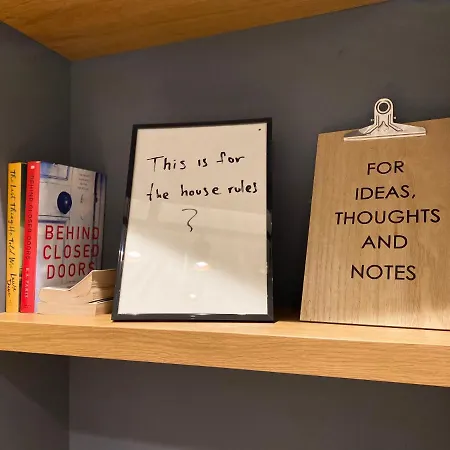 The Last Thing He Told Me
BEHIND CLOSED DOORS
BEHIND
CLOSED
DOORS
This is for
the house rules
?
FOR
IDEAS,
THOUGHTS
AND
NOTES